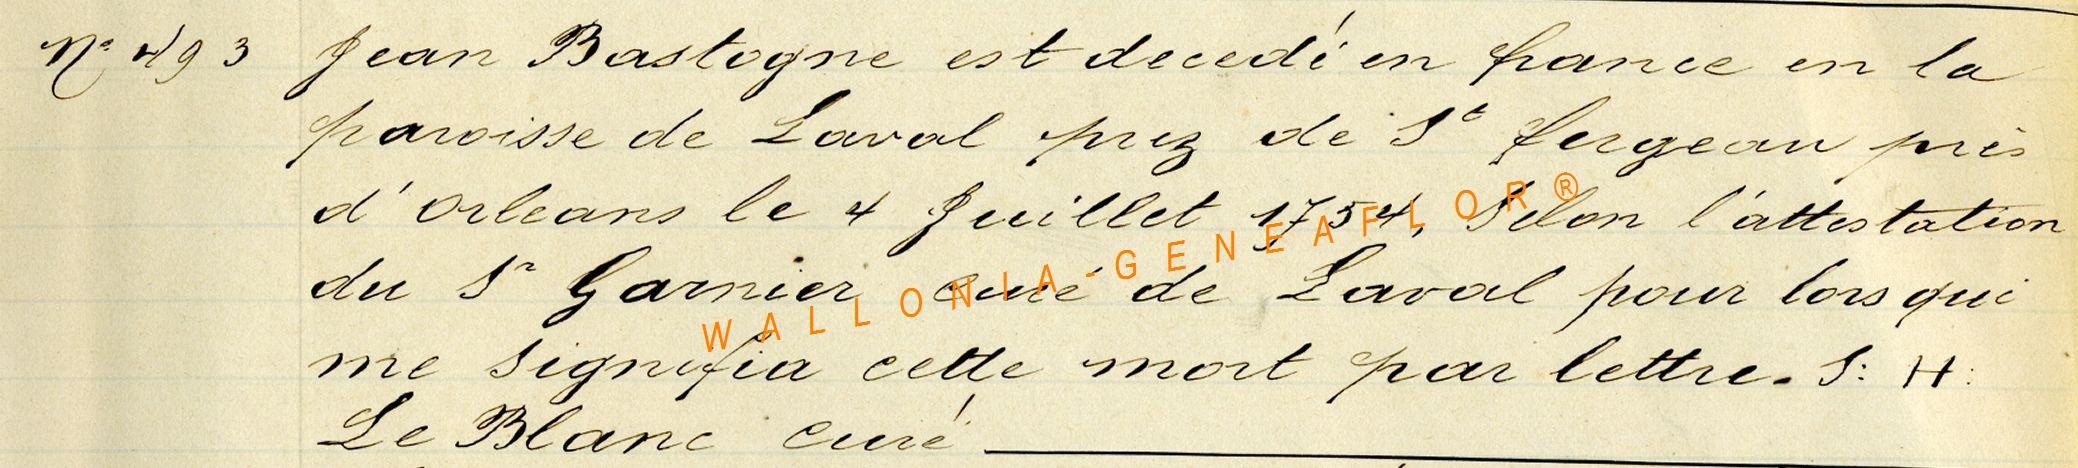 N° 493 Jean Bastogne est decedé en france en la
paroisse de Laval prez de St fergeau près
d'Orleans le 4 Juillet 1754, Selon l'attestation
du Sr Garnier Curé de Laval pour lors qui
me signifia cette mort par lettre. S: H:
Le Blanc Curé
WALLONIA-GENEAFLOR®